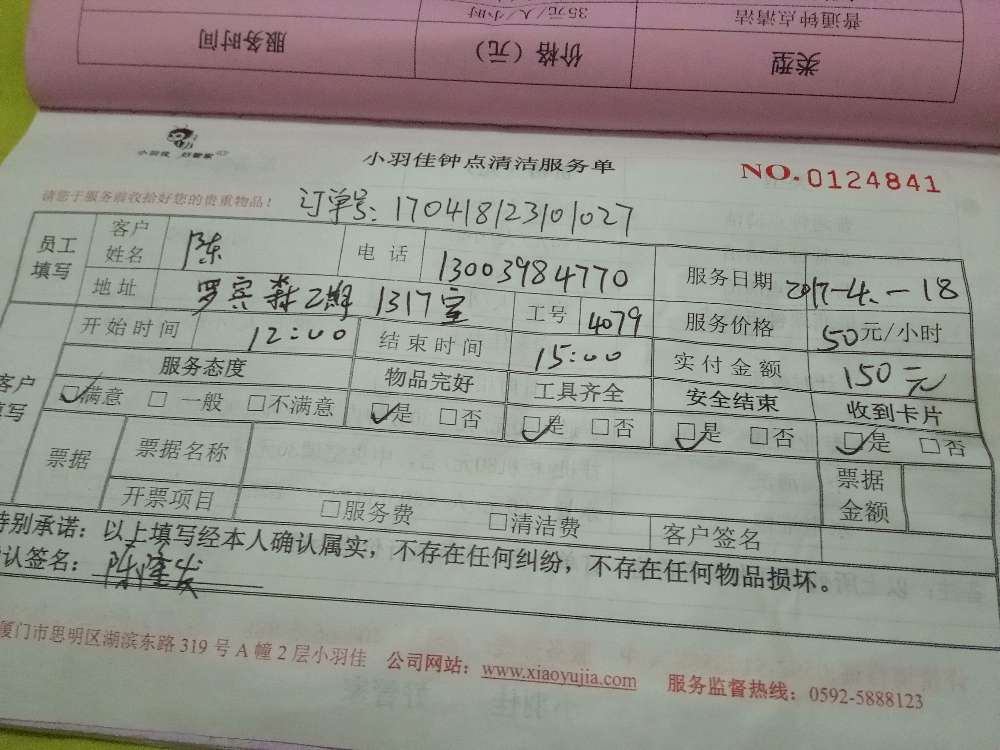 普通钟点清洁 35元/人/小时
类型 价格（元） 服务时间
小羽佳 好管家
小羽佳钟点清洁服务单
NO.0124841
请您于服务前收拾好您的贵重物品！
订单号：170418123101027
员工填写 客户姓名 陈 电话 13003984770 服务日期 2017-4.-18
地址 罗宾森2期 1317室 工号 4079 服务价格 50元/小时
开始时间 12:00 结束时间 15:00 实付金额 150元
客户填写 服务态度 物品完好 工具齐全 安全结束 收到卡片
☑满意 □一般 □不满意 ☑是 □否 ☑是 □否 ☑是 □否 ☑是 □否
票据 票据名称 票据金额
开票项目 □服务费 □清洁费 客户签名
特别承诺：以上填写经本人确认属实，不存在任何纠纷，不存在任何物品损坏。
确认签名：陈
厦门市思明区湖滨东路319号A幢2层小羽佳 公司网站：www.xiaoyujia.com 服务监督热线：0592-5888123